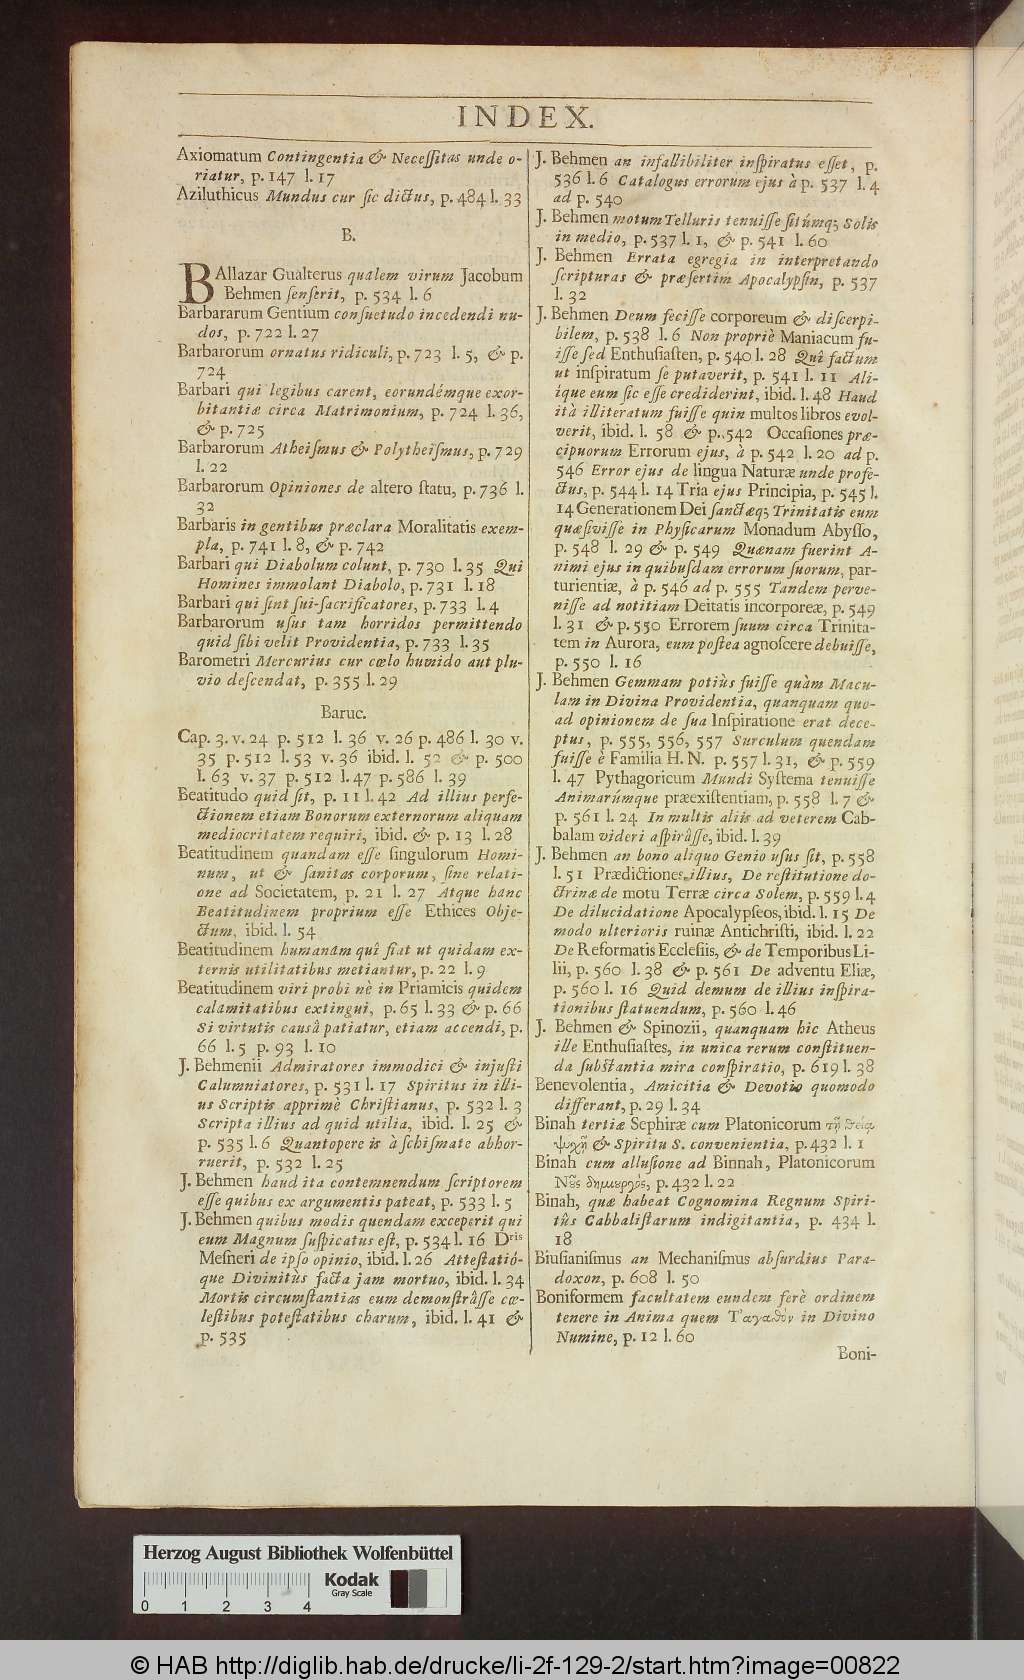 INDEX.
Axiomatum Contingentia & Necessitas unde o-
riatur, p. 147 l. 17
Aziluthicus Mundus cur sic dictus, p. 484 l. 33
B.
BAllazar Gualterus qualem virum Jacobum
Behmen senserit, p. 534 l. 6
Barbararum Gentium consuetudo incedendi nu-
dos, p. 722 l. 27
Barbarorum ornatus ridiculi, p. 723 l. 5, & p.
724
Barbari qui legibus carent, eorundémque exor-
bitantiæ circa Matrimonium, p. 724 l. 36,
& p. 725
Barbarorum Atheismus & Polytheismus, p. 729
l. 22
Barbarorum Opiniones de altero statu, p. 736 l.
32
Barbaris in gentibus præclara Moralitatis exem-
pla, p. 741 l. 8, & p. 742
Barbari qui Diabolum colunt, p. 730 l. 35 Qui
Homines immolant Diabolo, p. 731 l. 18
Barbari qui sint sui-sacrificatores, p. 733 l. 4
Barbarorum usus tam horridos permittendo
quid sibi velit Providentia, p. 733 l. 35
Barometri Mercurius cur cœlo humido aut plu-
vio descendat, p. 355 l. 29
Baruc.
Cap. 3. v. 24 p. 512 l. 36 v. 26 p. 486 l. 30 v.
35 p. 512 l. 53 v. 36 ibid. l. 52 & p. 500
l. 63 v. 37 p. 512 l. 47 p. 586 l. 39
Beatitudo quid sit, p. 11 l. 42 Ad illius perfe-
ctionem etiam Bonorum externorum aliquam
mediocritatem requiri, ibid. & p. 13 l. 28
Beatitudinem quandam esse singulorum Homi-
num, ut & sanitas corporum, sine relati-
one ad Societatem, p. 21 l. 27 Atque hanc
Beatitudinem proprium esse Ethices Obje-
ctum, ibid. l. 54
Beatitudinem humanam quî fiat ut quidam ex-
ternis utilitatibus metiantur, p. 22 l. 9
Beatitudinem viri probi nè in Priamicis quidem
calamitatibus extingui, p. 65 l. 33 & p. 66
Si virtutis causâ patiatur, etiam accendi, p.
66 l. 5 p. 93 l. 10
J. Behmenii Admiratores immodici & injusti
Calumniatores, p. 531 l. 17 Spiritus in illi-
us Scriptis apprimè Christianus, p. 532 l. 3
Scripta illius ad quid utilia, ibid. l. 25 &
p. 535 l. 6 Quantopere is à schismate abhor-
ruerit, p. 532 l. 25
J. Behmen haud ita contemnendum scriptorem
esse quibus ex argumentis pateat, p. 533 l. 5
J. Behmen quibus modis quendam exceperit qui
eum Magnum suspicatus est, p. 534 l. 16 Dris
Mesneri de ipso opinio, ibid. l. 26 Attestatió-
que Divinitùs facta jam mortuo, ibid. l. 34
Mortis circumstantias eum demonstrâsse cœ-
lestibus potestatibus charum, ibid. l. 41 &
p. 535
J. Behmen an infallibiliter inspiratus esset, p.
536 l. 6 Catalogus errorum ejus à p. 537 l. 4
ad p. 540
J. Behmen motum Telluris tenuisse sitúmq; Solis
in medio, p. 537 l. 1, & p. 541 l. 60
J. Behmen Errata egregia in interpretando
scripturas & præsertim Apocalypsin, p. 537
l. 32
J. Behmen Deum fecisse corporeum & discerpi-
bilem, p. 538 l. 6 Non propriè Maniacum fu-
isse sed Enthusiasten, p. 540 l. 28 Quî factum
ut inspiratum se putaverit, p. 541 l. 11 Ali-
íque eum sic esse crediderint, ibid. l. 48 Haud
ità illiteratum fuisse quin multos libros evol-
verit, ibid. l. 58 & p. 542 Occasiones præ-
cipuorum Errorum ejus, à p. 542 l. 20 ad p.
546 Error ejus de lingua Naturæ unde profe-
ctus, p. 544 l. 14 Tria ejus Principia, p. 545 l.
14 Generationem Dei sanctæq; Trinitatis eum
quæsivisse in Physicarum Monadum Abysso,
p. 548 l. 29 & p. 549 Quænam fuerint A-
nimi ejus in quibusdam errorum suorum, par-
turientiæ, à p. 546 ad p. 555 Tandem perve-
nisse ad notitiam Deitatis incorporeæ, p. 549
l. 31 & p. 550 Errorem suum circa Trinita-
tem in Aurora, eum postea agnoscere debuisse,
p. 550 l. 16
J. Behmen Gemmam potiùs fuisse quàm Macu-
lam in Divina Providentia, quanquam quo-
ad opinionem de sua Inspiratione erat dece-
ptus, p. 555, 556, 557 Surculum quendam
fuisse è Familia H. N. p. 557 l. 31, & p. 559
l. 47 Pythagoricum Mundi Systema tenuisse
Animarúmque præexistentiam, p. 558 l. 7 &
p. 561 l. 24 In multis aliis ad veterem Cab-
balam videri aspirâsse, ibid. l. 39
J. Behmen an bono aliquo Genio usus sit, p. 558
l. 51 Prædictiones illius, De restitutione do-
ctrinæ de motu Terræ circa Solem, p. 559 l. 4
De dilucidatione Apocalypseos, ibid. l. 15 De
modo ulterioris ruinæ Antichristi, ibid. l. 22
De Reformatis Ecclesiis, & de Temporibus Li-
lii, p. 560 l. 38 & p. 561 De adventu Eliæ,
p. 560 l. 16 Quid demum de illius inspira-
tionibus statuendum, p. 560 l. 46
J. Behmen & Spinozii, quanquam hic Atheus
ille Enthusiastes, in unica rerum constituen-
da substantia mira conspiratio, p. 619 l. 38
Benevolentia, Amicitia & Devotio quomodo
differant, p. 29 l. 34
Binah tertiæ Sephiræ cum Platonicorum τῇ θείᾳ
ψυχῇ & Spiritu S. convenientia, p. 432 l. 1
Binah cum allusione ad Binnah, Platonicorum
Νοῦς δημιουργός, p. 432 l. 22
Binah, quæ habeat Cognomina Regnum Spiri-
tûs Cabbalistarum indigitantia, p. 434 l.
18
Biusianismus an Mechanismus absurdius Para-
doxon, p. 608 l. 50
Boniformem facultatem eundem ferè ordinem
tenere in Anima quem Τἀγαθὸν in Divino
Numine, p. 12 l. 60
Boni-
Herzog August Bibliothek Wolfenbüttel
Kodak
Gray Scale
0 1 2 3 4
© HAB http://diglib.hab.de/drucke/li-2f-129-2/start.htm?image=00822